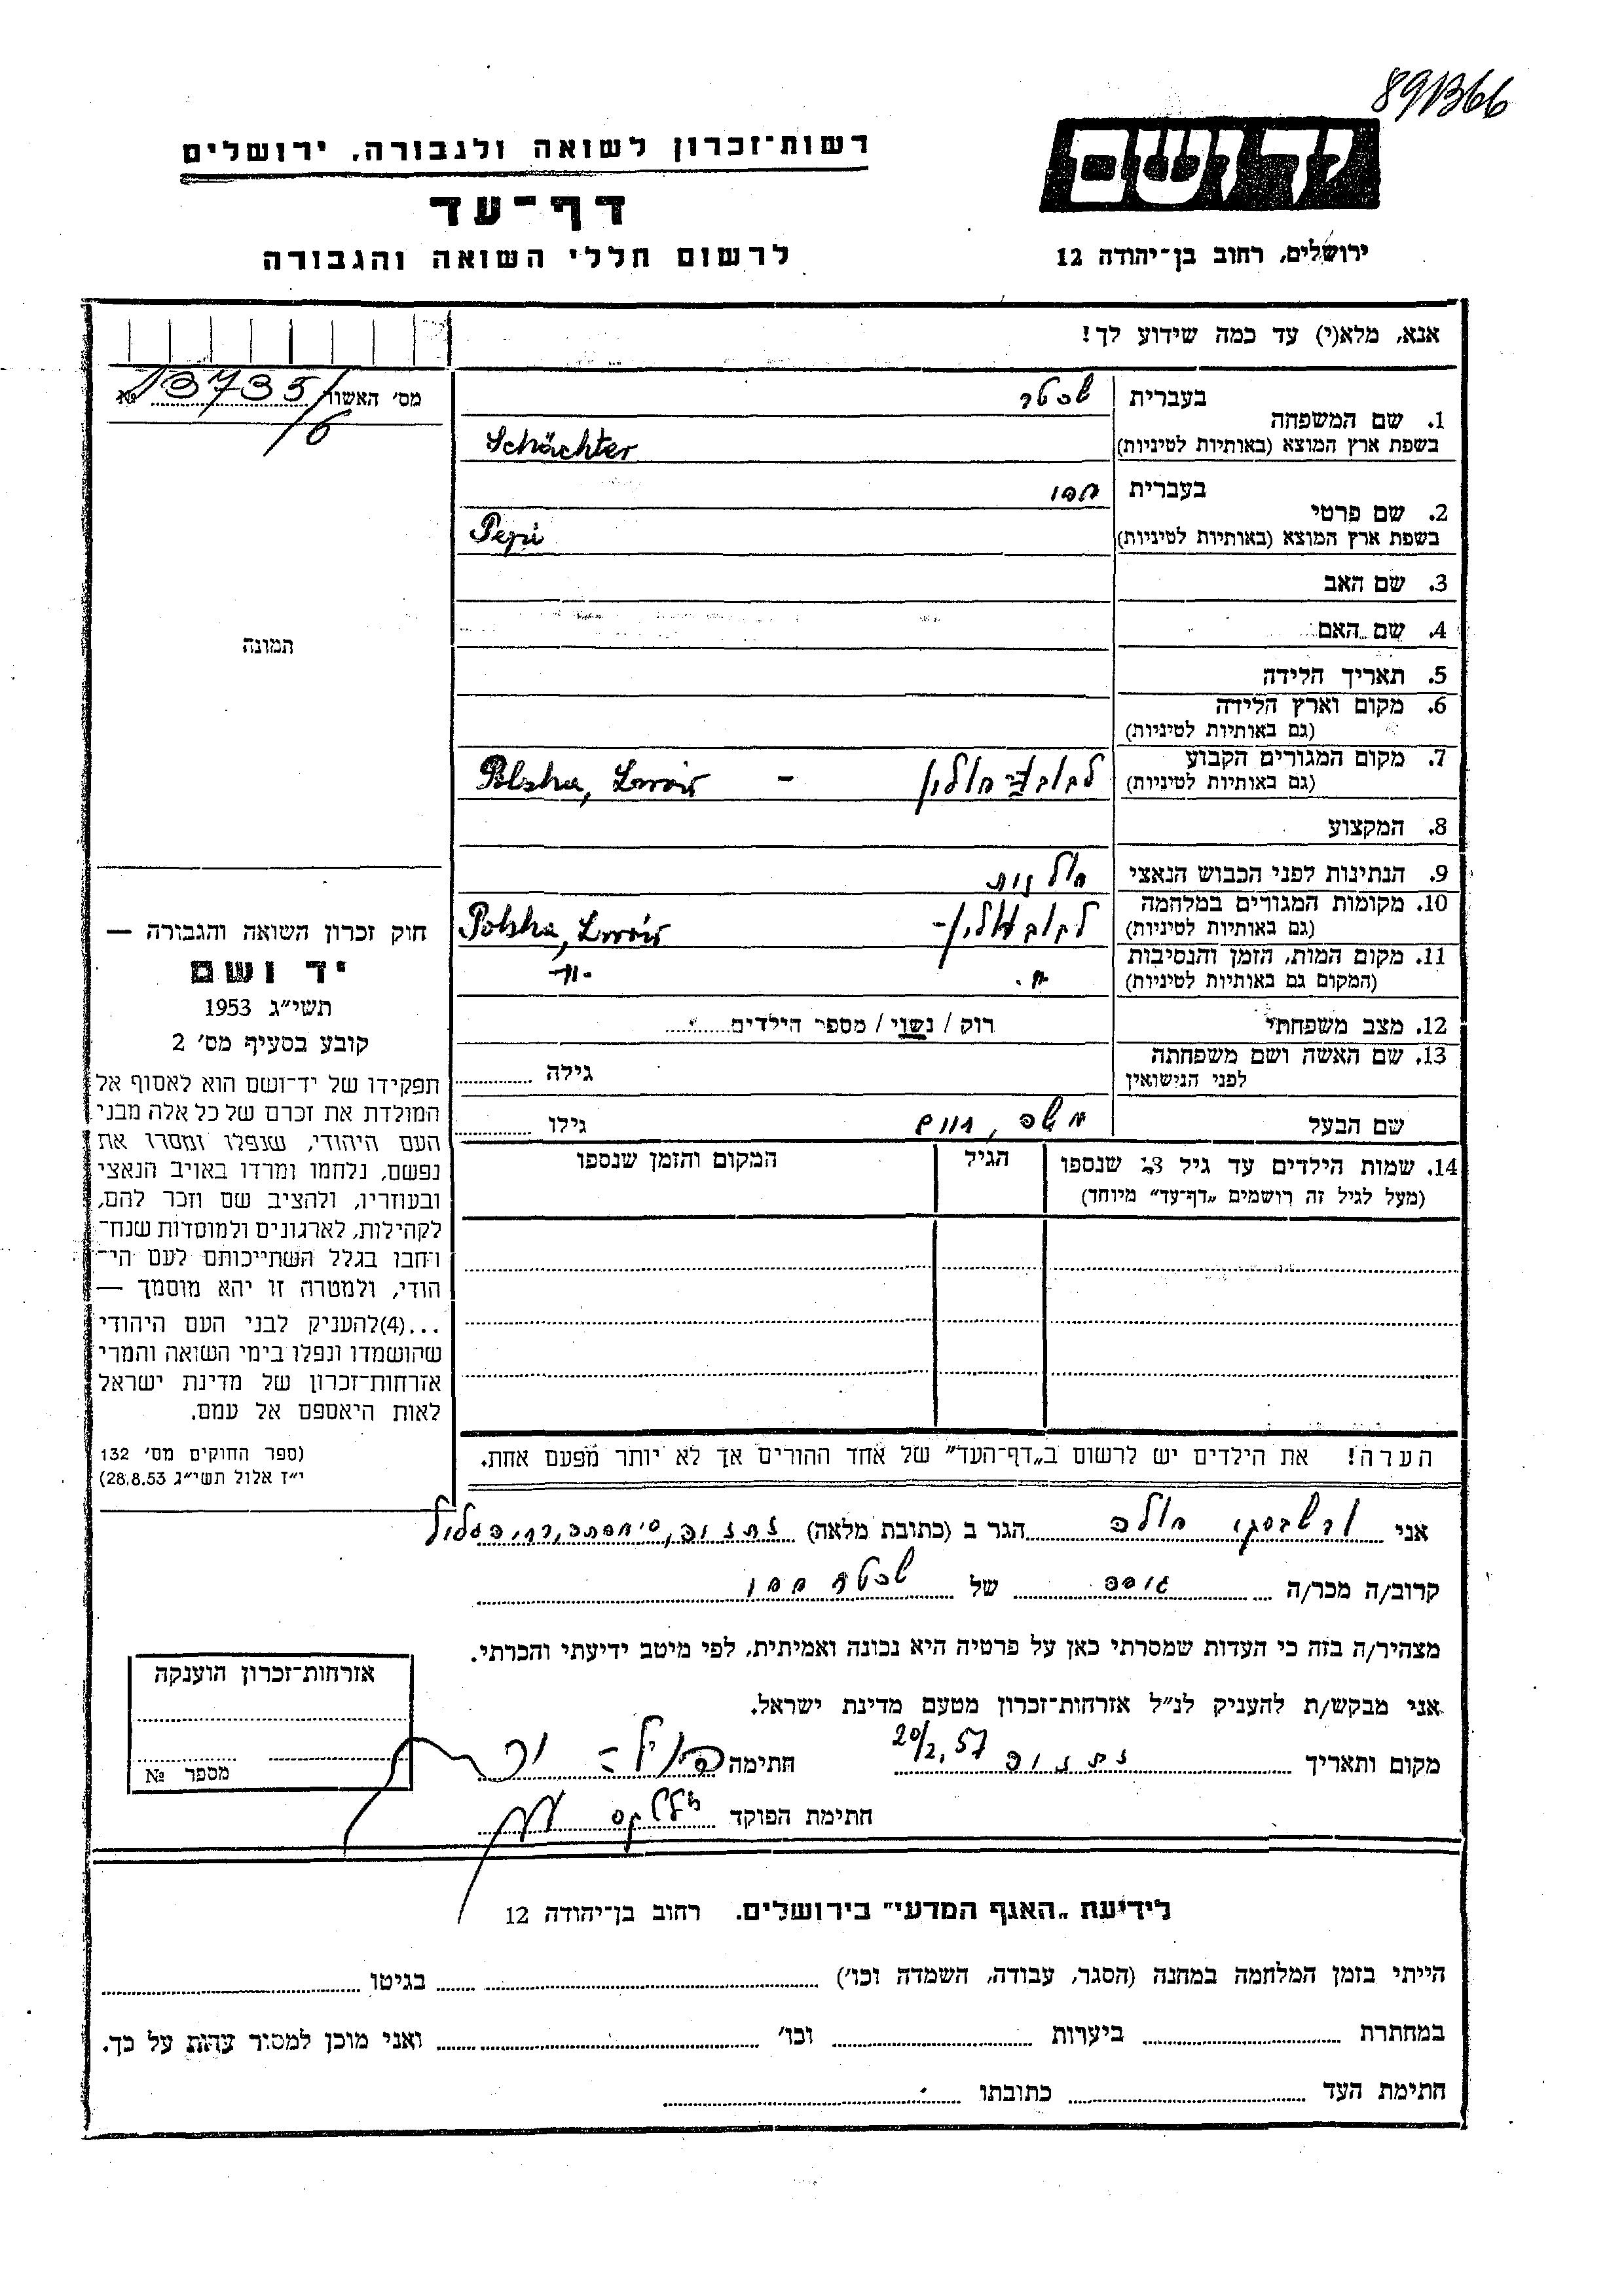 891366
רשות־זכרון לשואה ולגבורה, ירושלים
יד ושם
דף־עד
לרשום חללי השואה והגבורה
ירושלים, רחוב בן־יהודה 12
אנא, מלא(י) עד כמה שידוע לך!
מס׳ האשור № 13735/6
1. שם המשפחה
בעברית שכטר
בשפת ארץ המוצא (באותיות לטיניות) Schächter
2. שם פרטי
בעברית פפי
בשפת ארץ המוצא (באותיות לטיניות) Pepi
3. שם האב
4. שם האם
תמונה
5. תאריך הלידה
6. מקום וארץ הלידה
(גם באותיות לטיניות)
7. מקום המגורים הקבוע
(גם באותיות לטיניות) לבוב פולין - Polska, Lwów
8. המקצוע
9. הנתינות לפני הכבוש הנאצי פולנית
10. מקומות המגורים במלחמה
(גם באותיות לטיניות) לבוב פולין - Polska, Lwów
11. מקום המות, הזמן והנסיבות
(המקום גם באותיות לטיניות)
12. מצב משפחתי רוק / נשוי / מספר הילדים
13. שם האשה ושם משפחתה
לפני הנישואין
גילה
שם הבעל
גילו
14. שמות הילדים עד גיל 18 שנספו
(מעל לגיל זה רושמים „דף־עד״ מיוחד)
הגיל
המקום והזמן שנספו
חוק זכרון השואה והגבורה —
יד ושם
תשי״ג 1953
קובע בסעיף מס׳ 2
תפקידו של יד־ושם הוא לאסוף אל
המולדת את זכרם של כל אלה מבני
העם היהודי, שנפלו ומסרו את
נפשם, נלחמו ומרדו באויב הנאצי
ובעוזריו, ולהציב שם וזכר להם,
לקהילות, לארגונים ולמוסדות שנח־
רבו בגלל השתייכותם לעם הי־
הודי, ולמטרה זו יהא מוסמך —
...(4)להעניק לבני העם היהודי
שהושמדו ונפלו בימי השואה והמרי
אזרחות־זכרון של מדינת ישראל
לאות היאספם אל עמם.
(ספר החוקים מס׳ 132
י״ז אלול תשי״ג 28.8.53)
הערה! את הילדים יש לרשום ב„דף־העד״ של אחד ההורים אך לא יותר מפעם אחת.
אני הגר ב (כתובת מלאה)
קרוב/ה מכר/ה גיסה של שכטר פפי
מצהיר/ה בזה כי העדות שמסרתי כאן על פרטיה היא נכונה ואמיתית, לפי מיטב ידיעתי והכרתי.
אני מבקש/ת להעניק לנ״ל אזרחות־זכרון מטעם מדינת ישראל.
מקום ותאריך נתניה 20/2.57 חתימה
חתימת הפוקד
אזרחות־זכרון הוענקה
מספר №
לידיעת „האגף המדעי״ בירושלים. רחוב בן־יהודה 12
הייתי בזמן המלחמה במחנה (הסגר, עבודה, השמדה וכו׳) בגיטו
במחתרת ביערות וכו׳ ואני מוכן למסור עדות על כך.
חתימת העד כתובתו